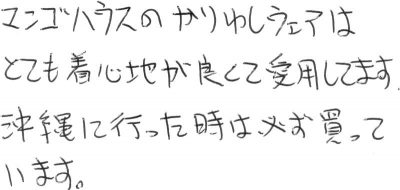 マンゴハウスのかりゆしウェアは
とても着心地が良くて愛用してます.
沖縄に行った時は必ず買って
います。